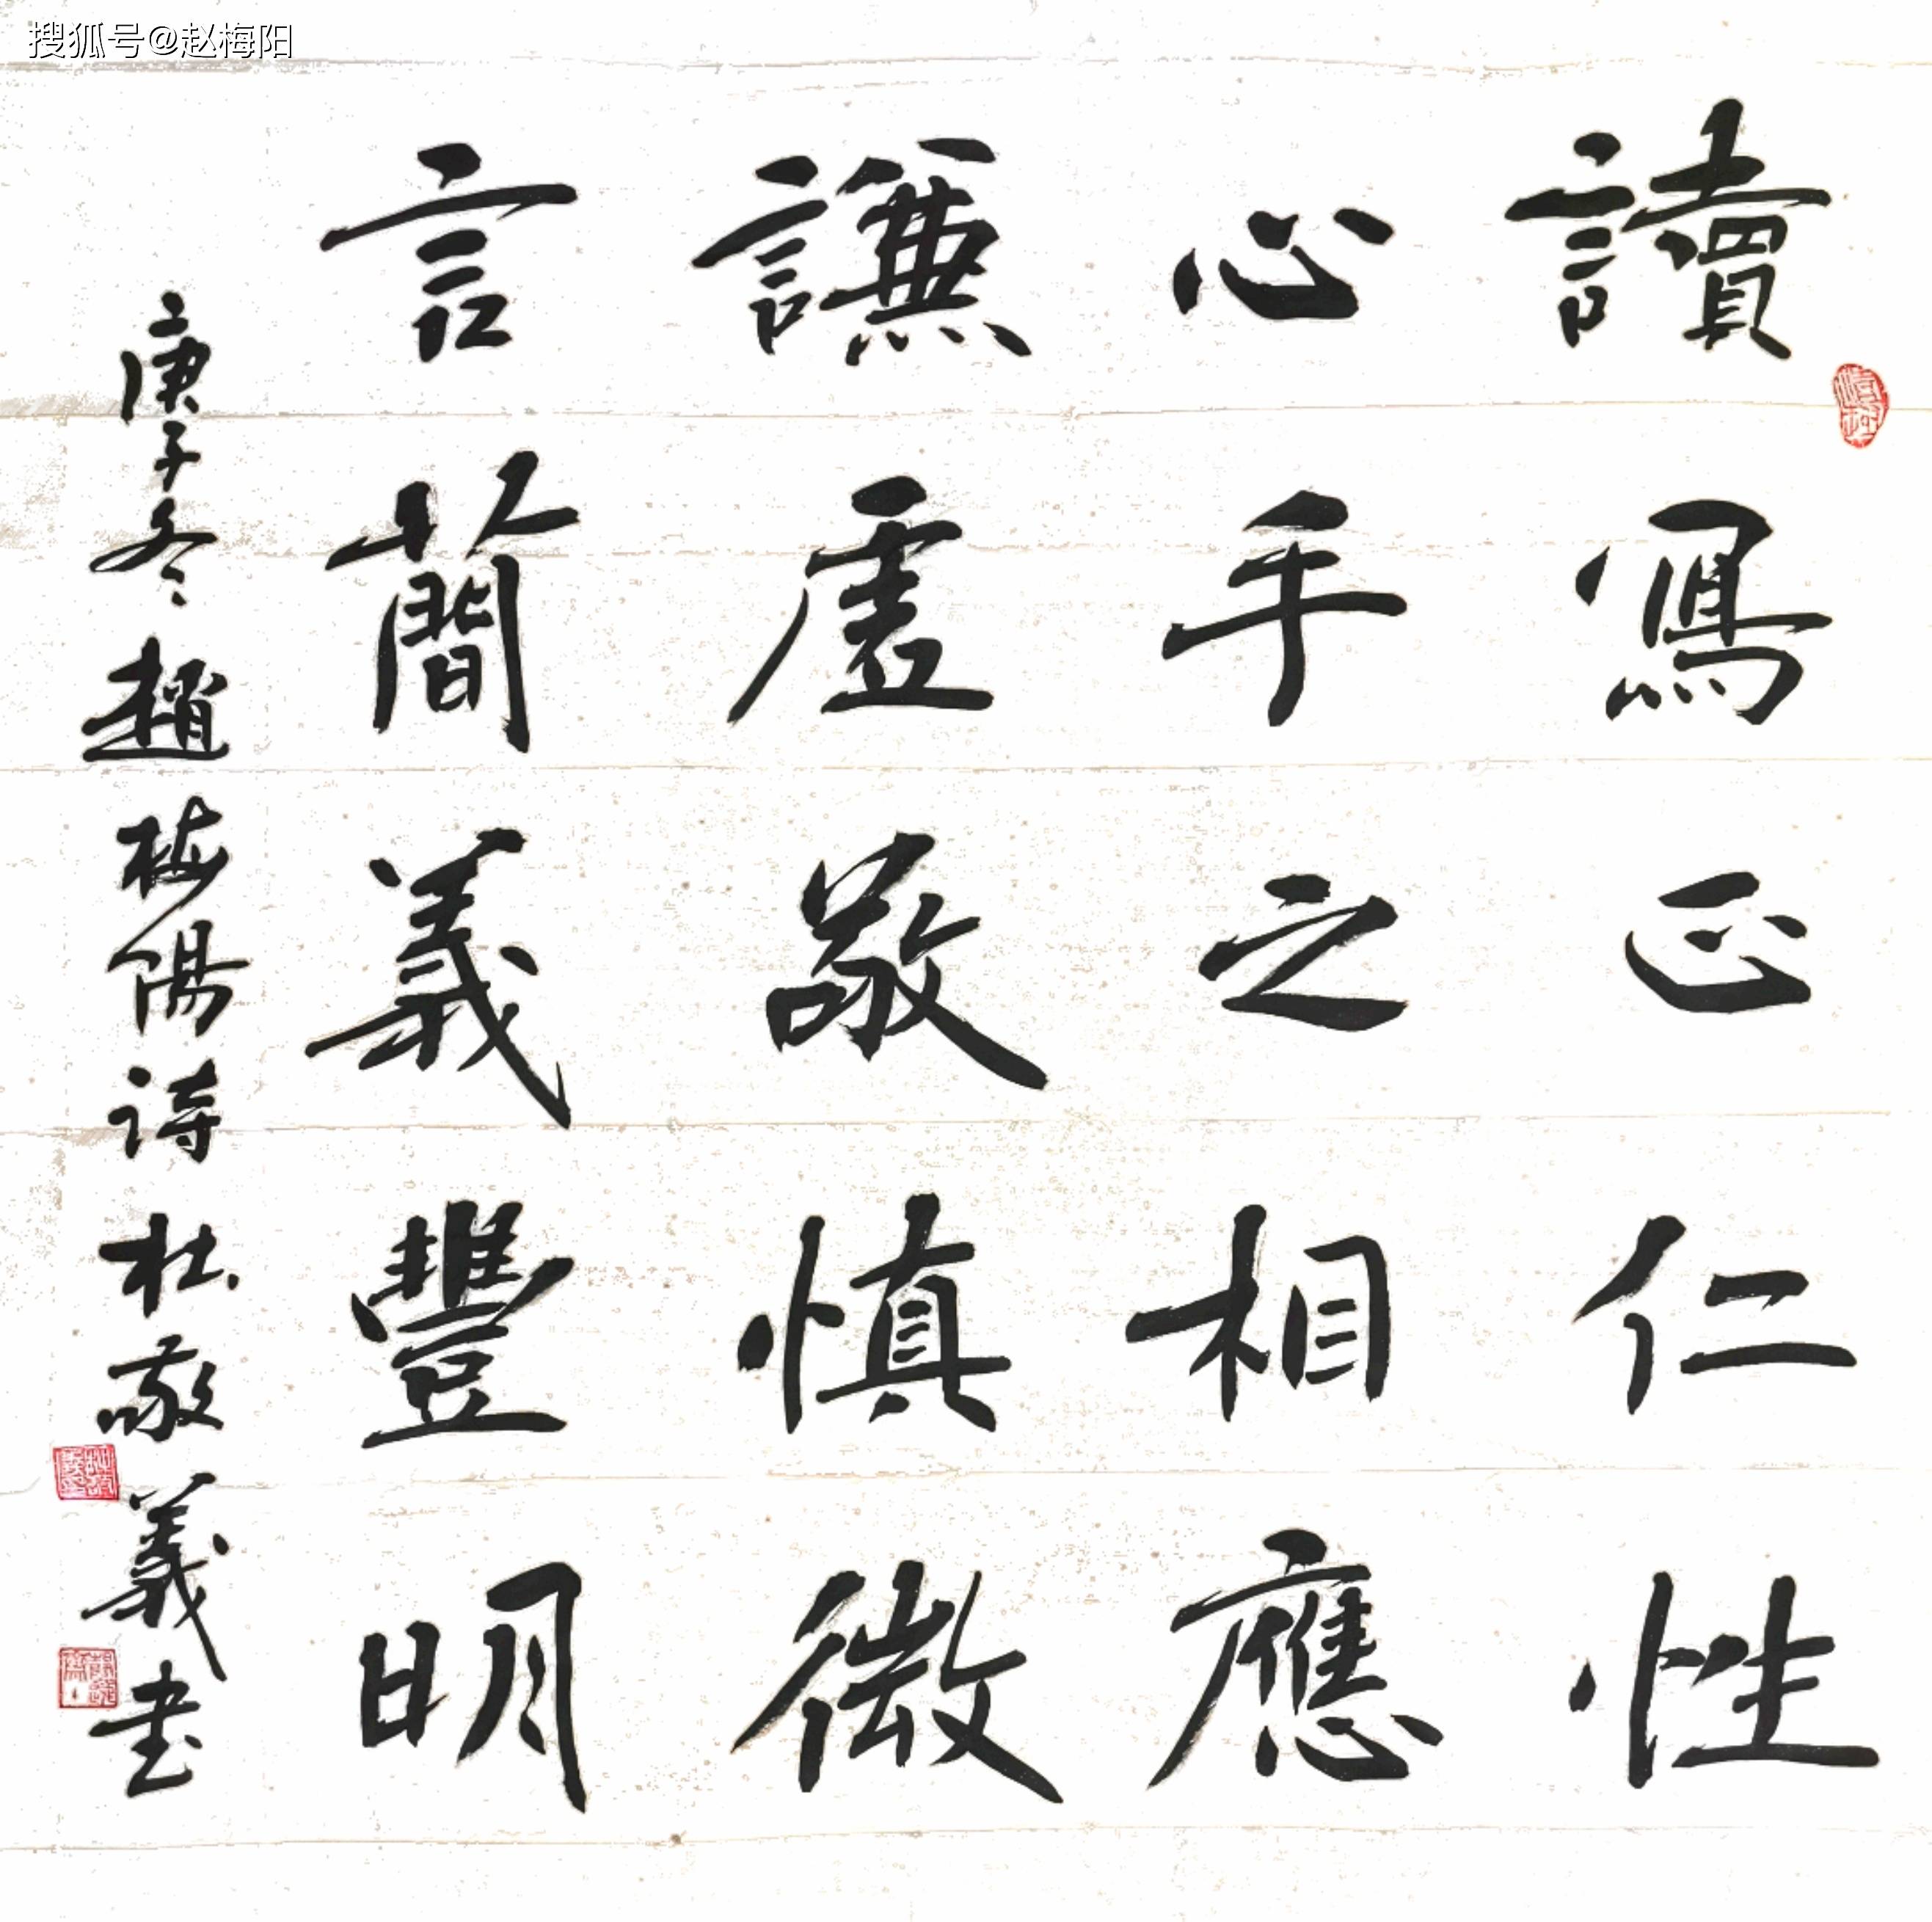 搜狐号@赵梅阳
讀寫正仁性
心手之相應
謙虛敬慎微
言簡義豐明
庚子冬趙梅陽詩杜敬義书